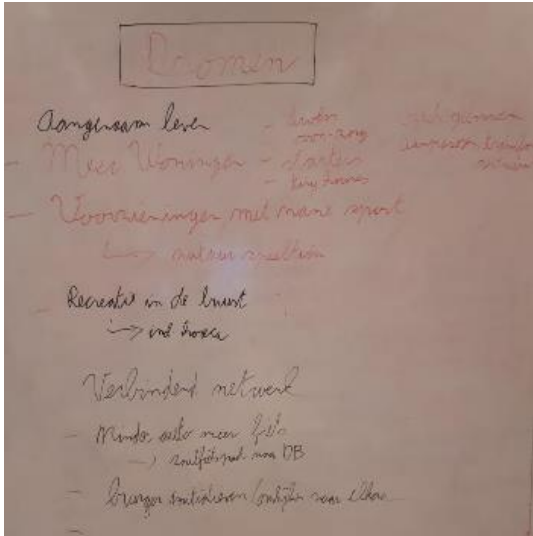 Dromen
Aangenaam leven
- Meer Woningen - starters
- tiny homes
- Voorzieningen met name sport
→ natuur speeltuin
- Recreatie in de buurt
→ incl horeca
Verbindend netwerk
- Minder auto meer fiets
→ snelfietspad naar DB
- burger initiatieven